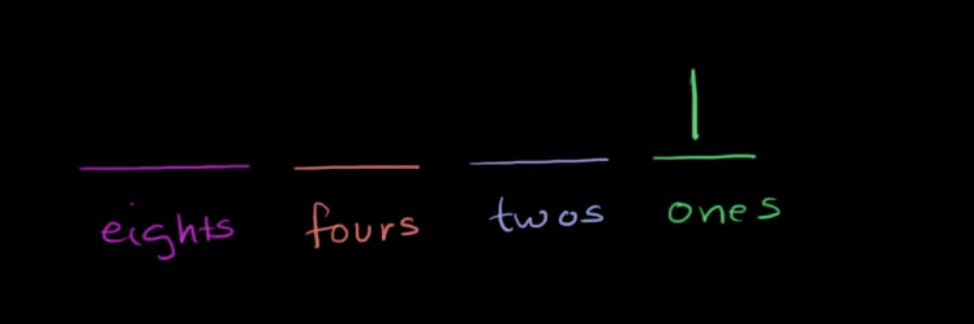 1
eights fours twos ones